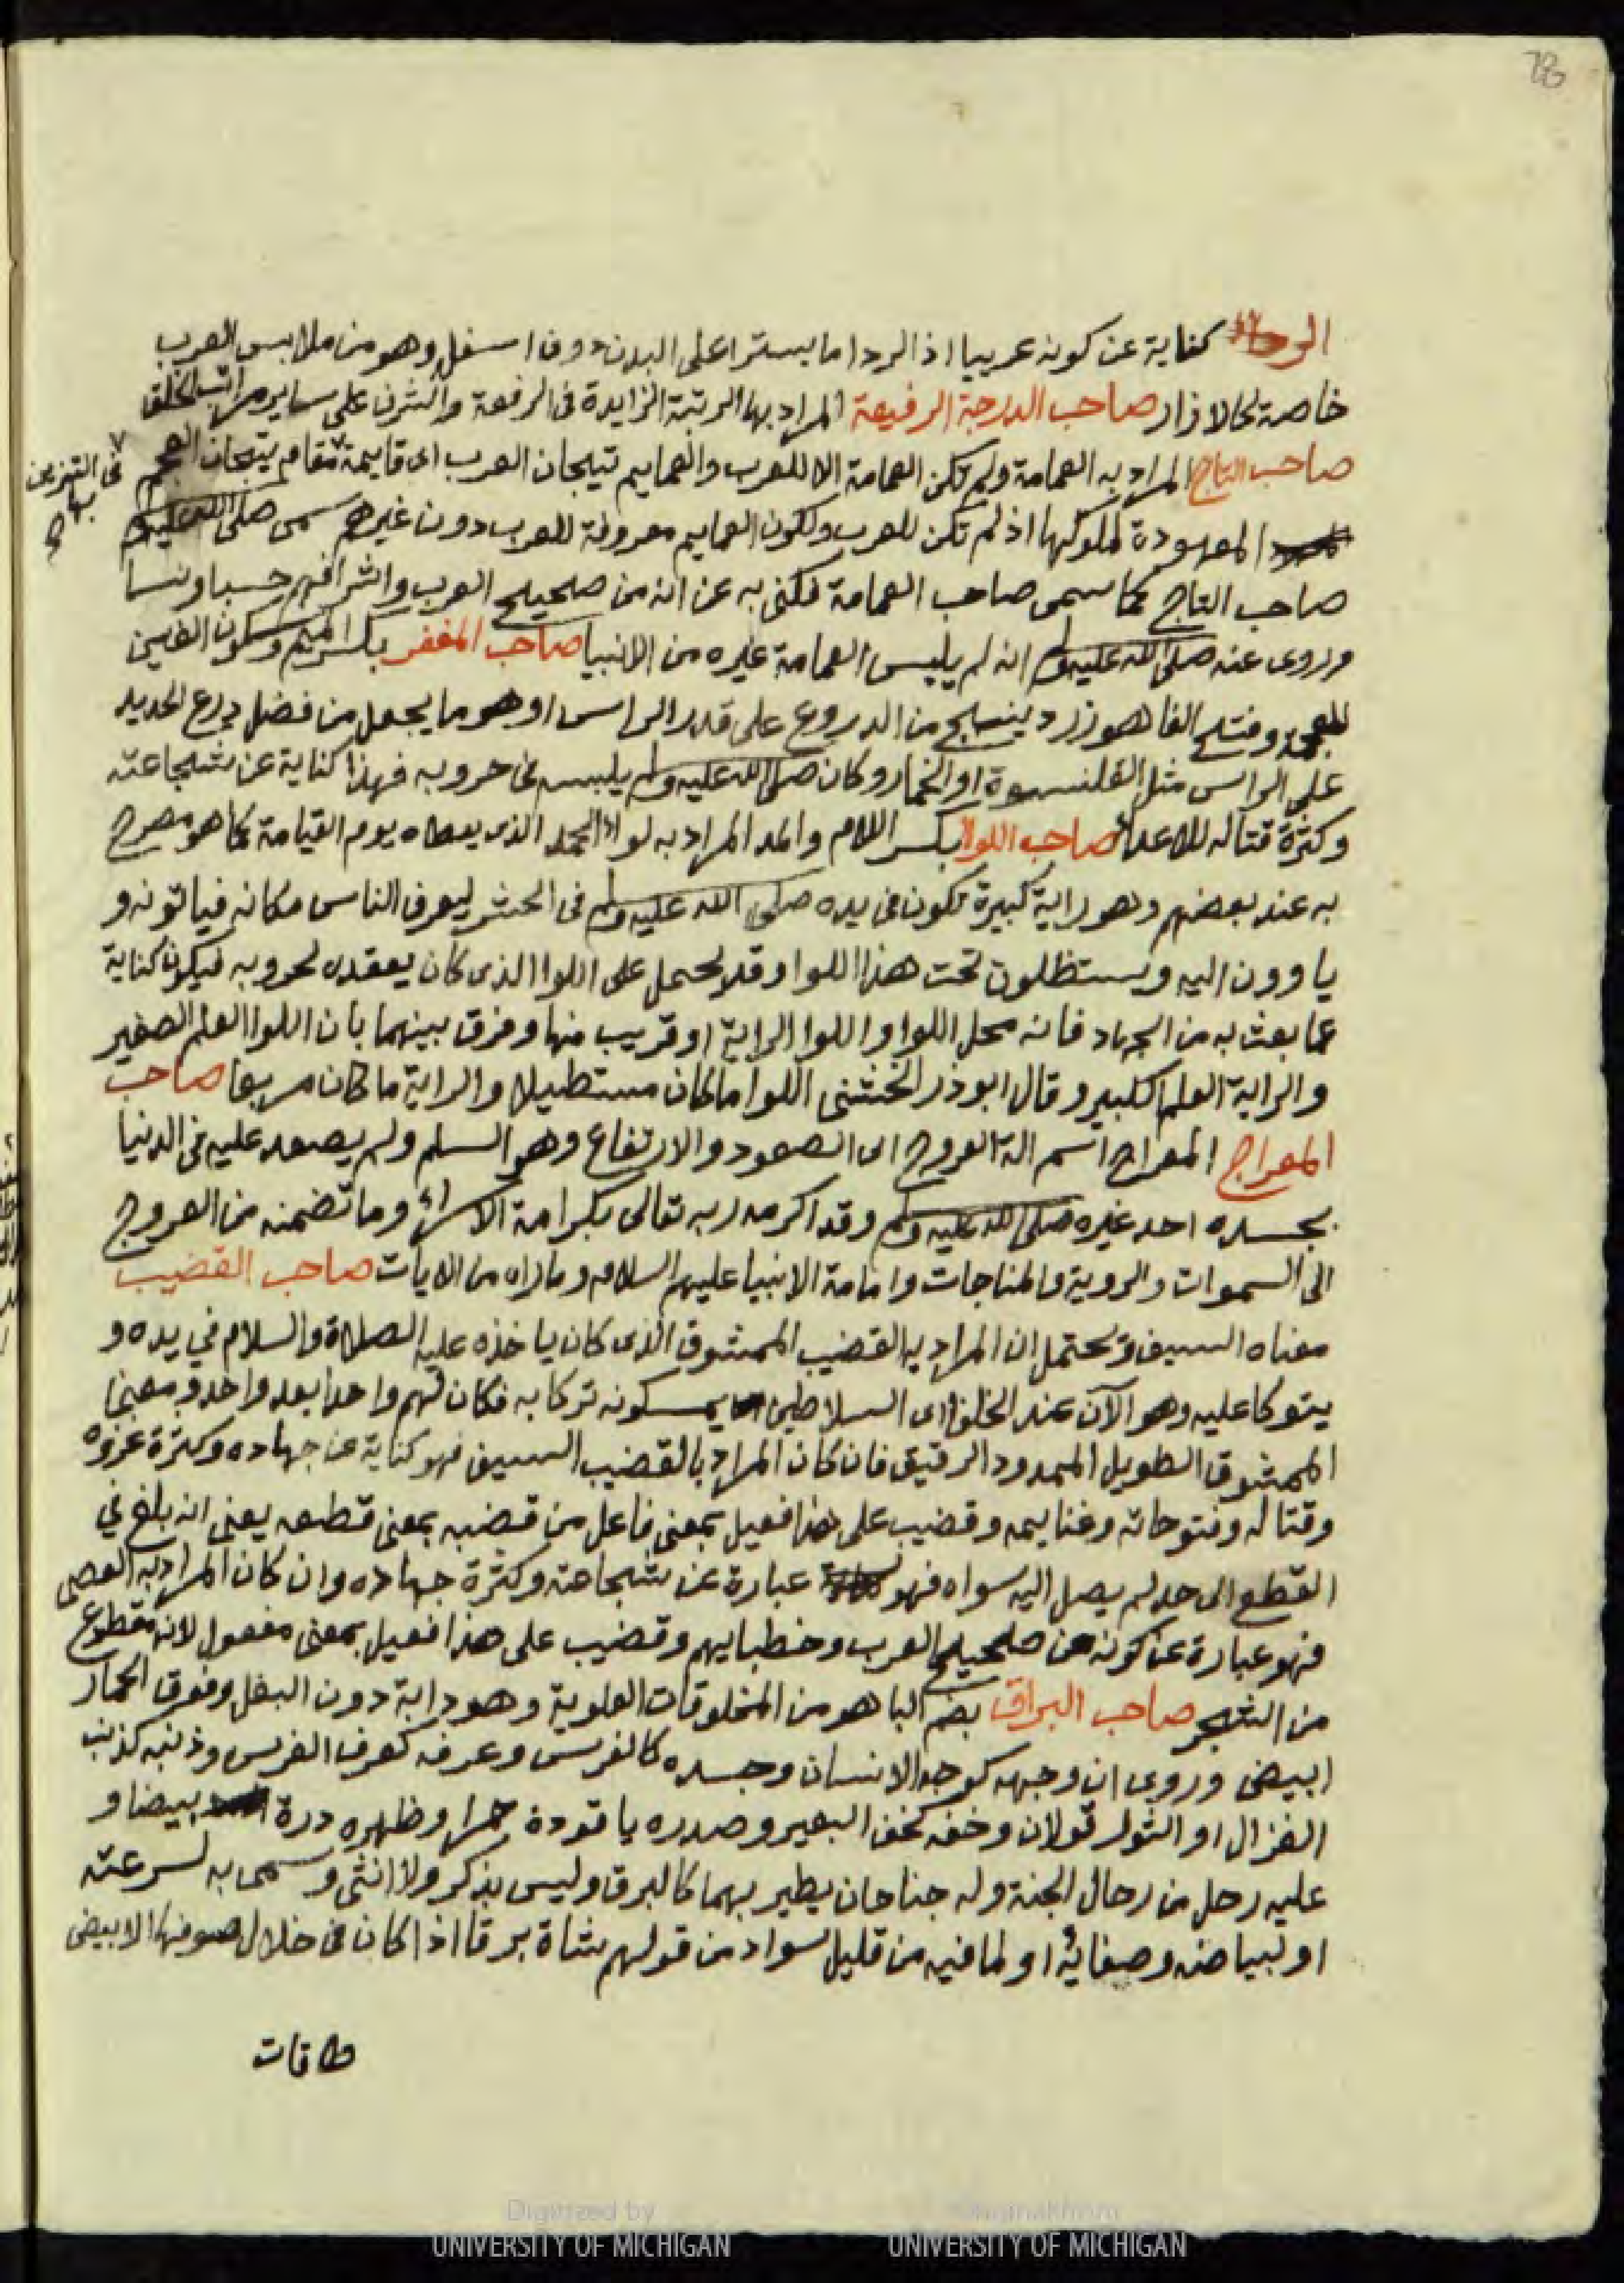 78
الرداء كناية عن كونه عربيا اذ الردا ما يستر اعلى البدن دون اسفله وهو من ملابس العرب
خاصة كالازار صاحب الدرجة الرفيعة المراد بها الرتبة الزايدة في الرفعة والشرف على ساير مراتب الخلق
صاحب التاج المراد به العمامة ولم تكن العمامة الا للعرب والعمايم تيجان العرب اى قايمة مقام تيجان العجم في التزين بها
المعهودة لملوكها اذ لم تكن للعرب ولكون العمايم معروفة للعرب دون غيرهم سمى صلى الله عليه وسلم
صاحب التاج كما سمى صاحب العمامة فكنى به عن انه من صحيح العرب واشرافهم حسبا ونسبا
وروى عنه صلى الله عليه وسلم انه لم يلبس العمامة غيره من الانبيا صاحب المغفر بكسر الميم وسكون الغين
المعجمة وفتح الفا هو زرد ينسج من الدروع على قدر الراس او هو ما يجعل من فضل درع الحديد
على الراس مثل القلنسوة او الخمار وكان صلى الله عليه وسلم يلبسه في حروبه فهذا كناية عن شجاعته
وكثرة قتاله للاعداء صاحب اللواء بكسر اللام والمد المراد به لواء الحمد الذى يعطاه يوم القيامة كما هو مصرح
به عند بعضهم وهو راية كبيرة تكون في يده صلى الله عليه وسلم في الحشر ليعرف الناس مكانه فياتونه و
ياوون اليه ويستظلون تحت هذا اللوا وقد يحتمل على اللوا الذى كان يعقده لحروبه فيكون كناية
عما بعث به من الجهاد فانه محل اللوا واللوا الراية او قريب منها وفرق بينهما بان اللوا العلم الصغير
والراية العلم الكبير وقال ابو ذر الخشنى اللوا ما كان مستطيلا والراية ما كان مربعا صاحب
المعراج المعراج اسم الة العروج اى الصعود والارتفاع وهو السلم ولم يصعد عليه في الدنيا
بجسده احد غيره صلى الله عليه وسلم وقد اكرمه ربه تعالى بكرامة الاسراء وما تضمنه من العروج
الى السموات والروية والمناجات وامامة الانبيا عليهم السلام وما راه من الايات صاحب القضيب
معناه السيف ويحتمل ان المراد به القضيب الممشوق الذى كان ياخذه عليه الصلاة والسلام في يده و
يتوكا عليه وهو الآن عند الخلفا اى السلاطين يمسكونه تبركا به فكان لهم واحدا بعد واحد ومعنى
الممشوق الطويل الممدود الرقيق فان كان المراد بالقضيب السيف فهو كناية عن جهاده وكثرة غزوه
وقتاله وفتوحاته وغنايمه وقضيب على هذا فعيل بمعنى فاعل من قضبه بمعنى قطعه يعنى انه بلغ في
القطع الى حد لم يصل اليه سواه فهو عبارة عن شجاعته وكثرة جهاده وان كان المراد به العصى
فهو عبارة عن كونه من صحيح العرب وخطبايهم وقضيب على هذا فعيل بمعنى مفعول لانه مقطوع
من الشجر صاحب البراق بضم البا هو من المخلوقات العلوية وهو دابة دون البغل وفوق الحمار
ابيض وروى ان وجهه كوجه الانسان وجسده كالفرس وعرفه كعرف الفرس وذنبه كذنب
الغزال او الثور قولان وخفه كخف البعير وصدره ياقوتة حمرا وظهره درة بيضا و
عليه رحل من رحال الجنة وله جناحان يطير بهما كالبرق وليس بذكر ولا انثى وسمى به لسرعته
او لبياضه وصفايه او لما فيه من قليل سواد من قولهم شاة برقا اذا كان في خلال صوفها الابيض
طاقات
Digitized by
UNIVERSITY OF MICHIGAN
UNIVERSITY OF MICHIGAN